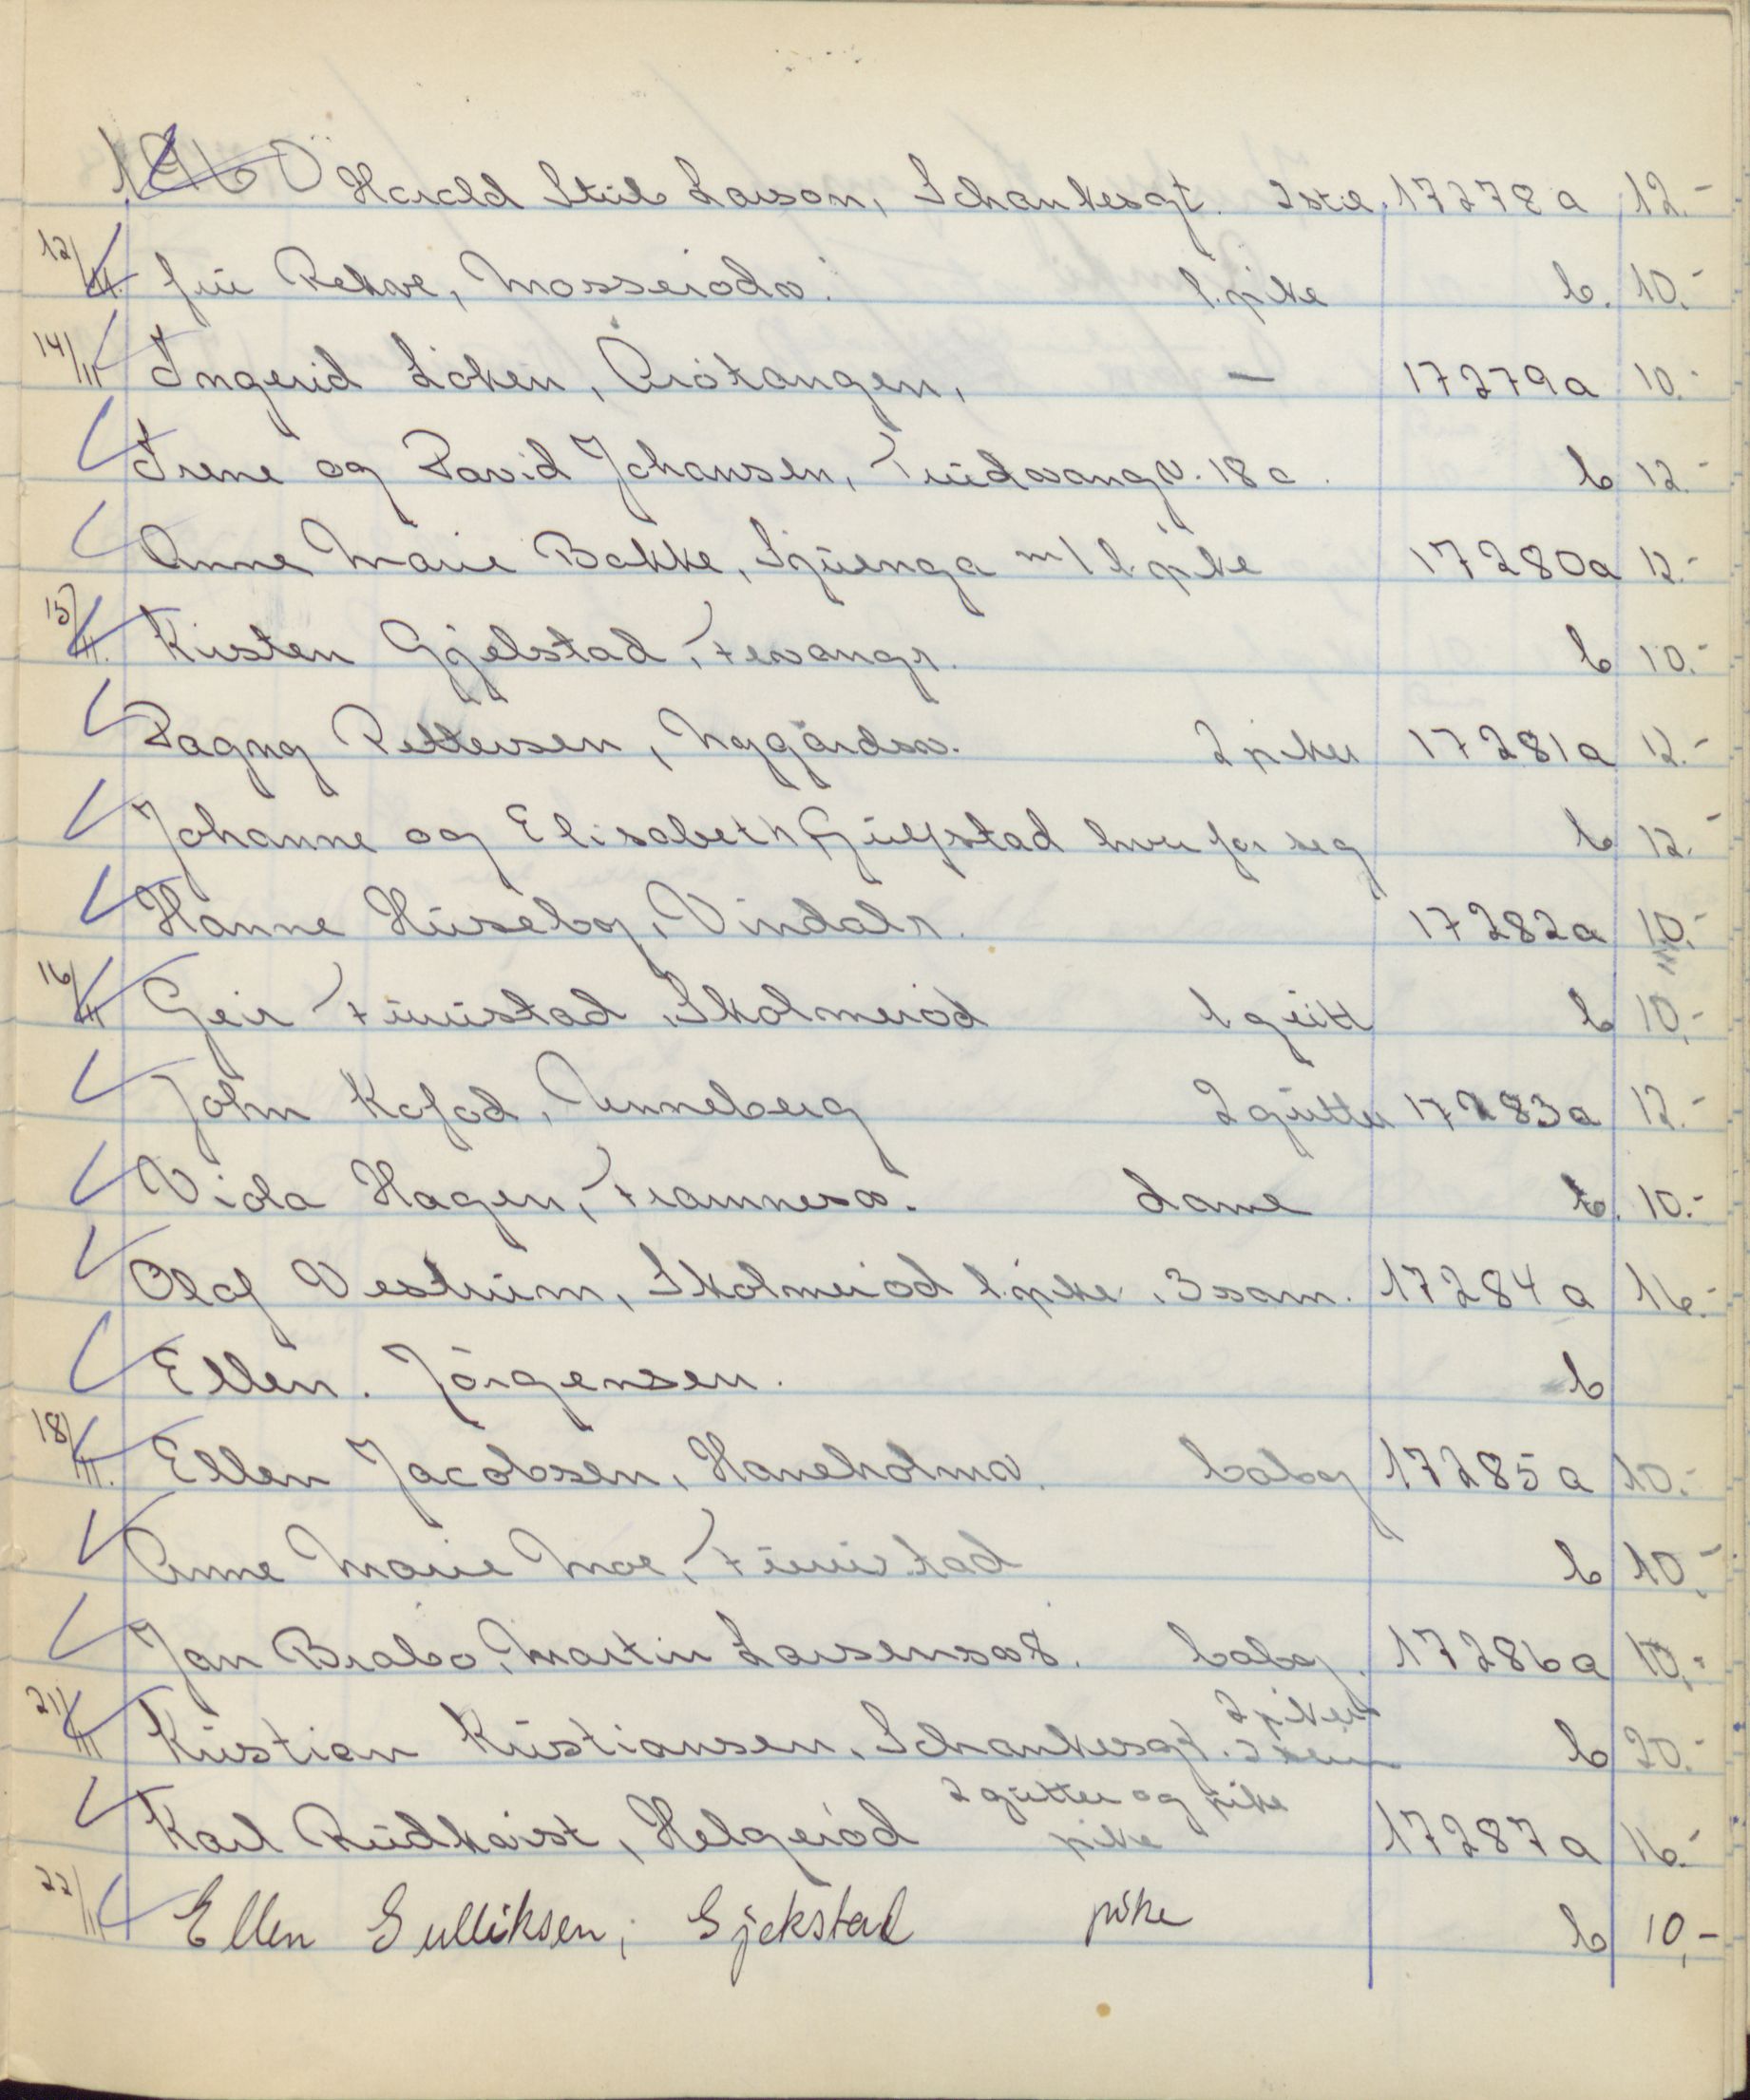 1960 Harald Stub Larson, Schankesgt. 2 stk. 17278 a 12.-
12/11. fru Rekve, Mosserödv. 1 pike b. 10.-
14/11 Ingerid Löken, Årötangen, — 17279a 10.-
Irene og David Johansen, Trudvangv. 18 c. b 12.-
Anne Marie Bakke, Sjuenga m/ 1 pike 17280a 12.-
15/11. Kirsten Gjelstad, Fevangr. b 10.-
Dagny Pettersen, Nygårdsv. 2 piker 17281a 12.-
Johanne og Elisabeth Gulfstad hver for seg b 12.-
Hanne Huseby, Vindalr. 17282a 10.-
16/11 Geir Furustad, Skolmeröd 1 gutt b 10,-
John Kofod, Unneberg 2 gutter 17283a 12.-
Viola Hagen, Framnesv. dame b. 10.-
Olaf Vestrum, Skolmeröd 1 pike, 3 sam. 17284 a 16.-
Ellen. Jörgensen. b
18/11. Ellen Jacobsen, Haneholmv. baby 17285 a 10.-
Anne Marie Moe, Furustad b 10,-
Jan Brabo, Martin Larsensv 8. baby. 17286a 10,-
2 piker
21/11 Kristian Kristiansen, Schankesgt. b 20.-
2 gutter og pike
Karl Rudkvist, Helgeröd pike 17287a 16.-
22/11 Ellen Gulliksen, Gjekstad pike b 10,-